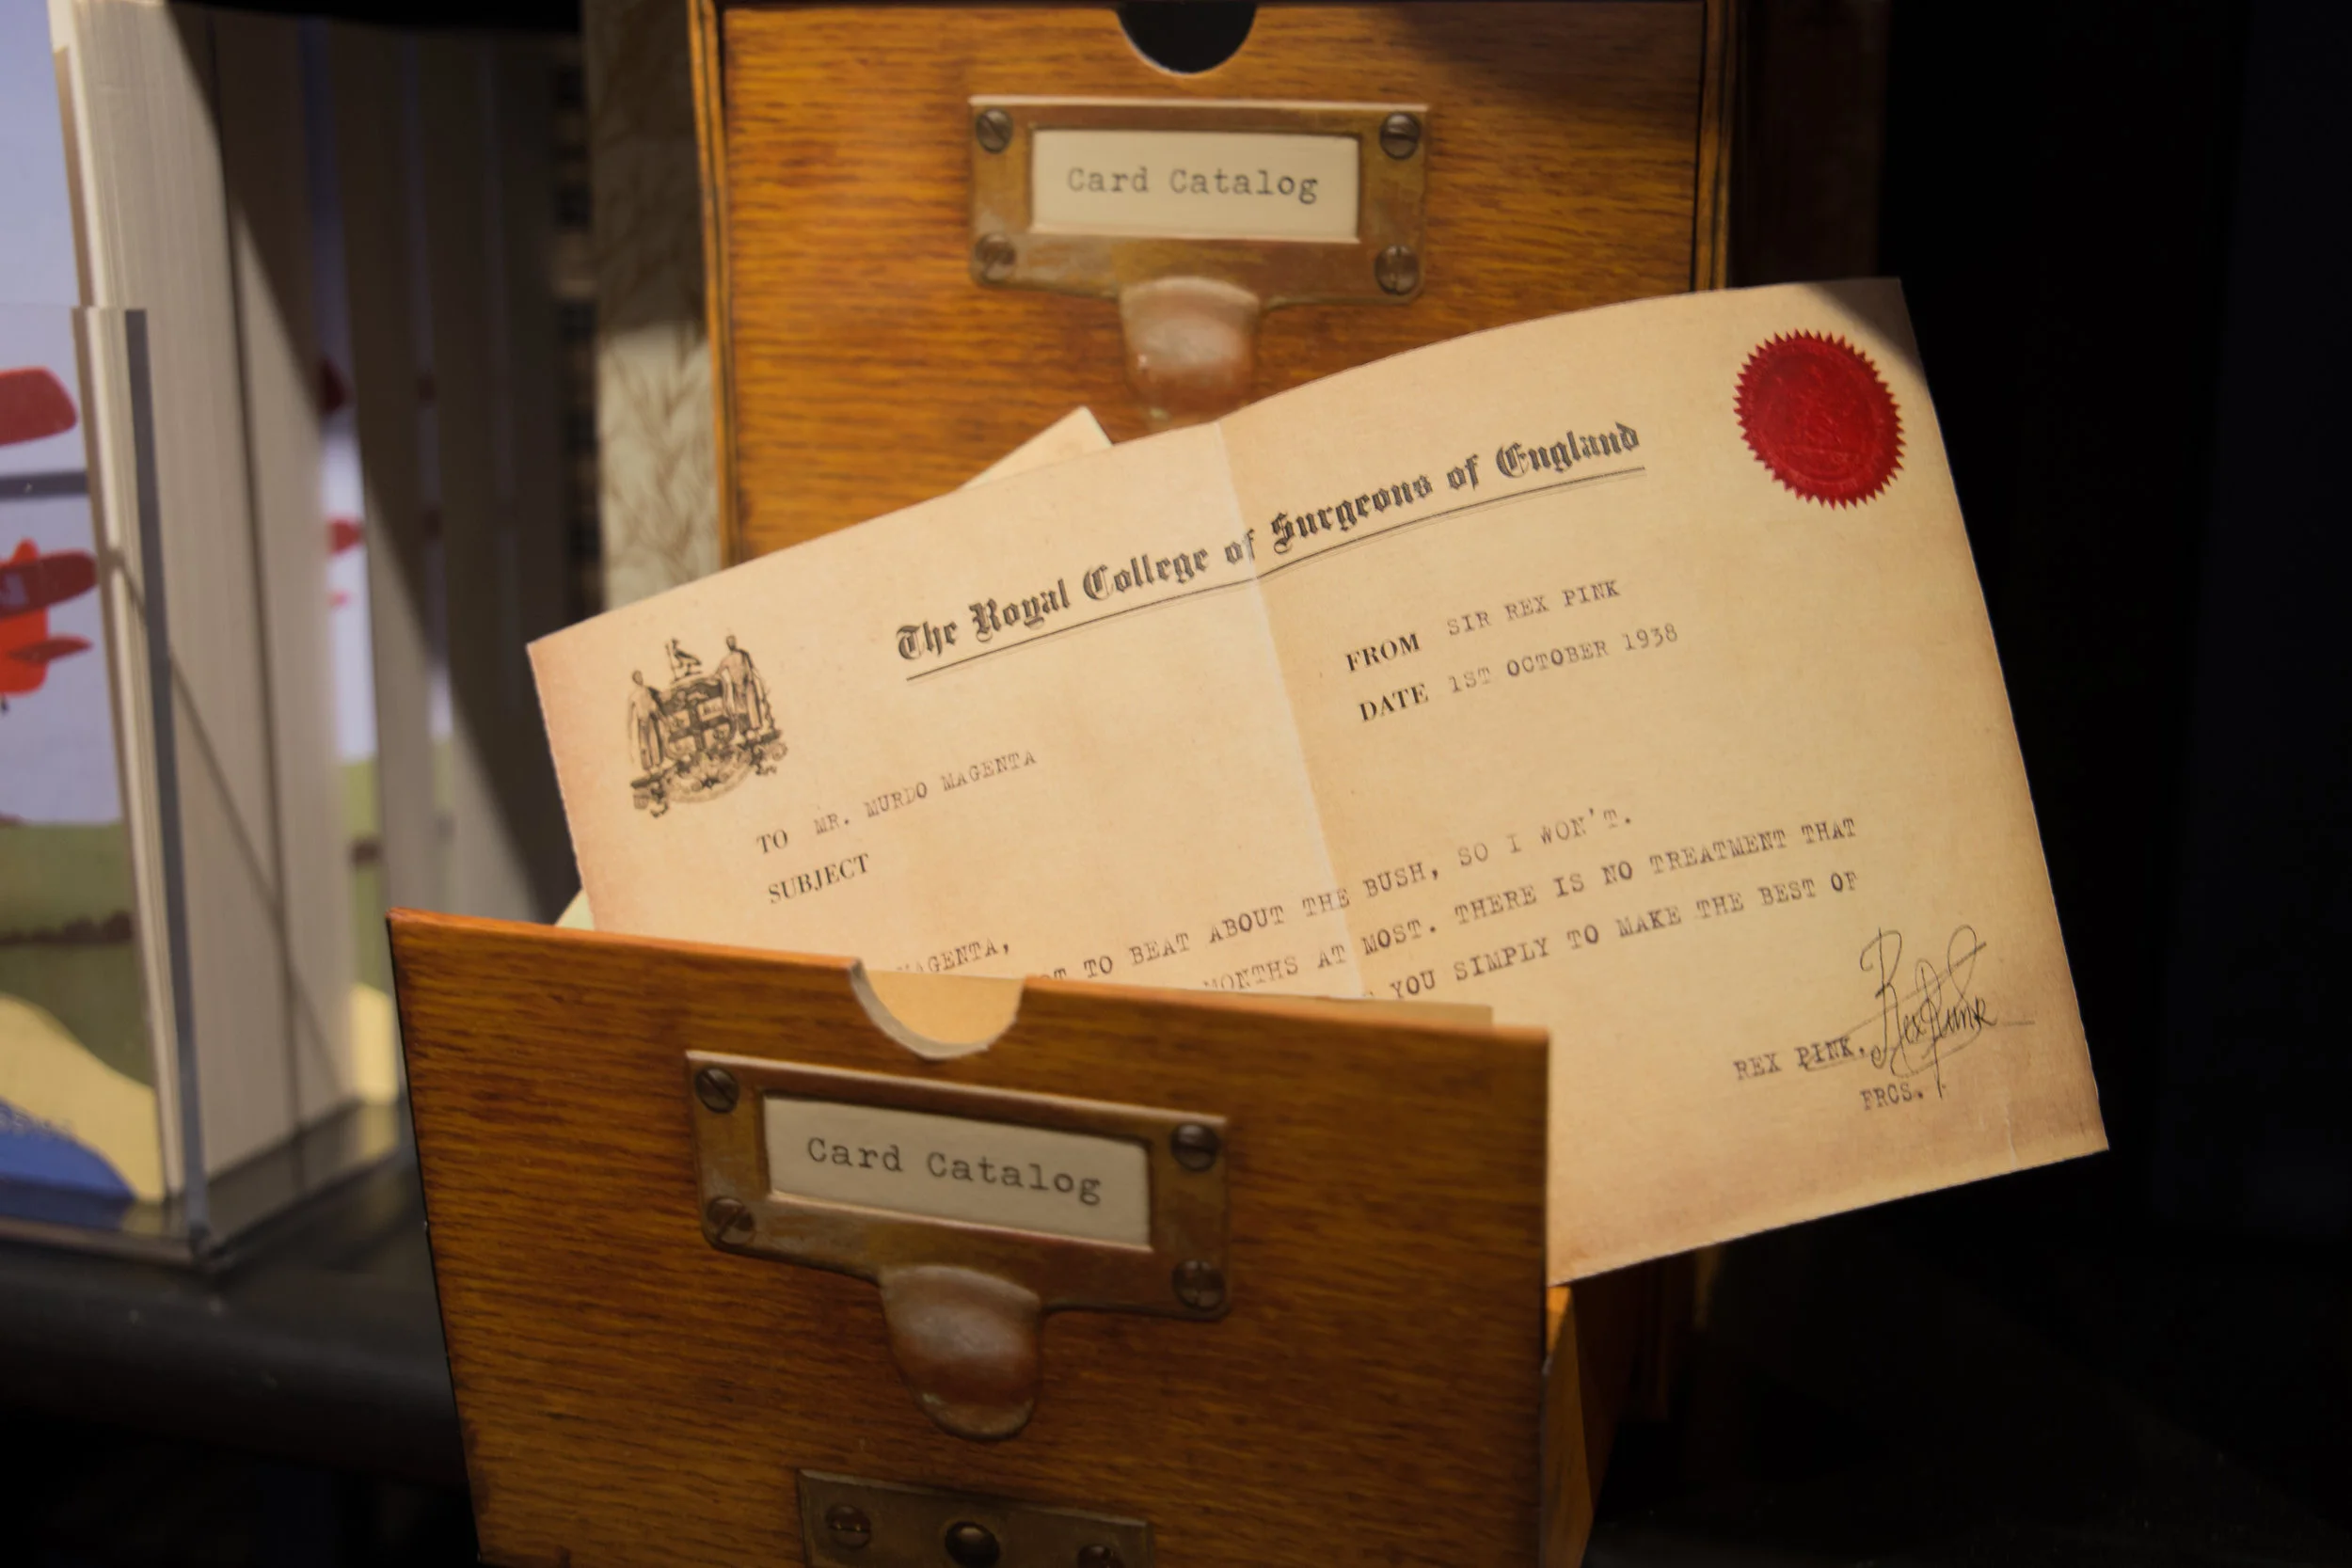 Card Catalog
The Royal College of Surgeons of England
FROM SIR REX PINK
DATE 1ST OCTOBER 1938
TO MR. MURDO MAGENTA
SUBJECT
MAGENTA,
TO BEAT ABOUT THE BUSH, SO I WON'T.
MONTHS AT MOST. THERE IS NO TREATMENT THAT
YOU SIMPLY TO MAKE THE BEST OF
Rex Pink
REX PINK.
FRCS.
Card Catalog